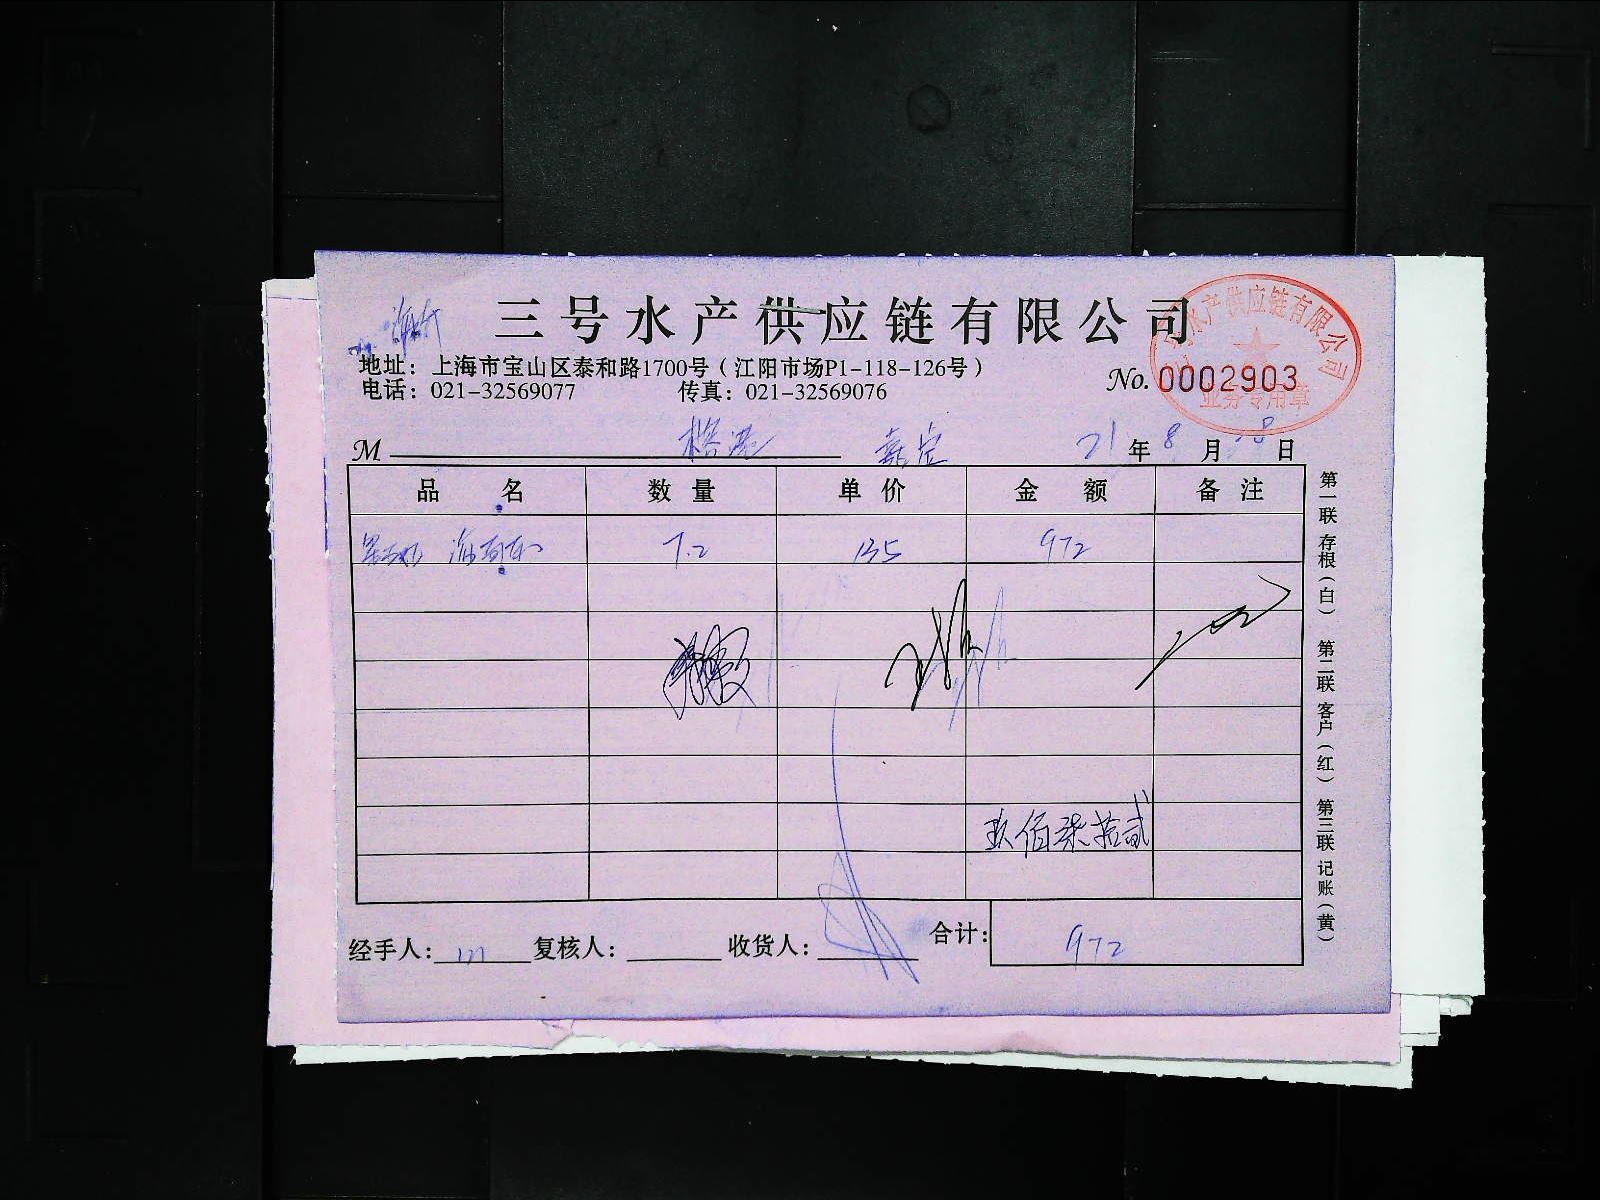 三号水产供应链有限公司
地址：上海市宝山区泰和路1700号（江阳市场P1-118-126号）
电话：021-32569077 传真：021-32569076
No. 0002903
水产供应链有限公司
业务专用章
M 嘉定 21年8月28日
品名 数量 单价 金额 备注
7.2 135 972
玖佰柒拾贰
经手人： 复核人： 收货人： 合计： 972
第一联 存根（白） 第二联 客户（红） 第三联 记账（黄）